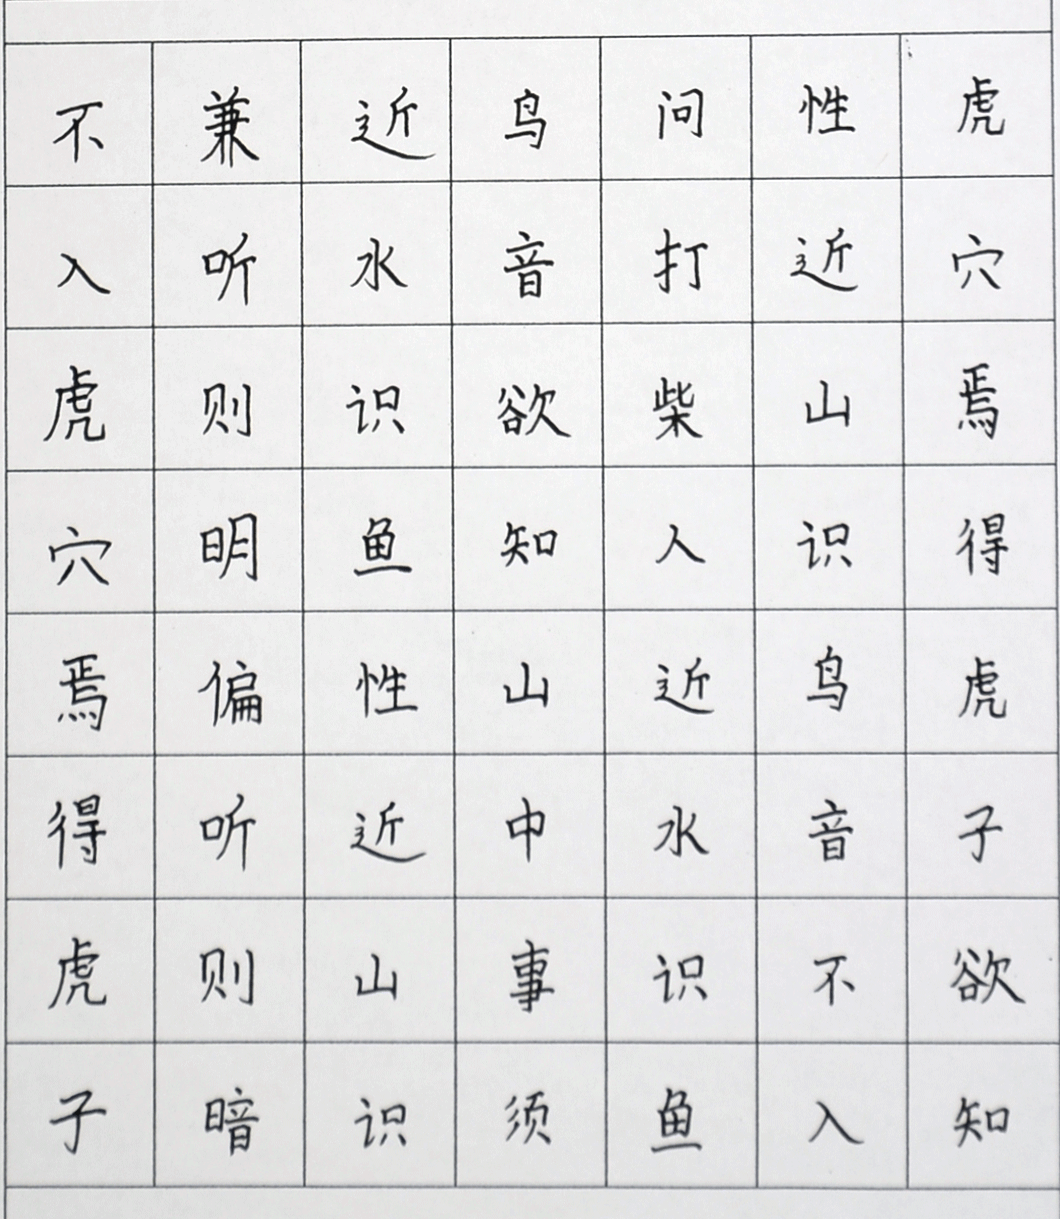 不入虎穴焉得虎子
兼听则明偏听则暗
近水识鱼性近山识
鸟音欲知山中事须
问打柴人近水识鱼
性近山识鸟音不入
虎穴焉得虎子欲知